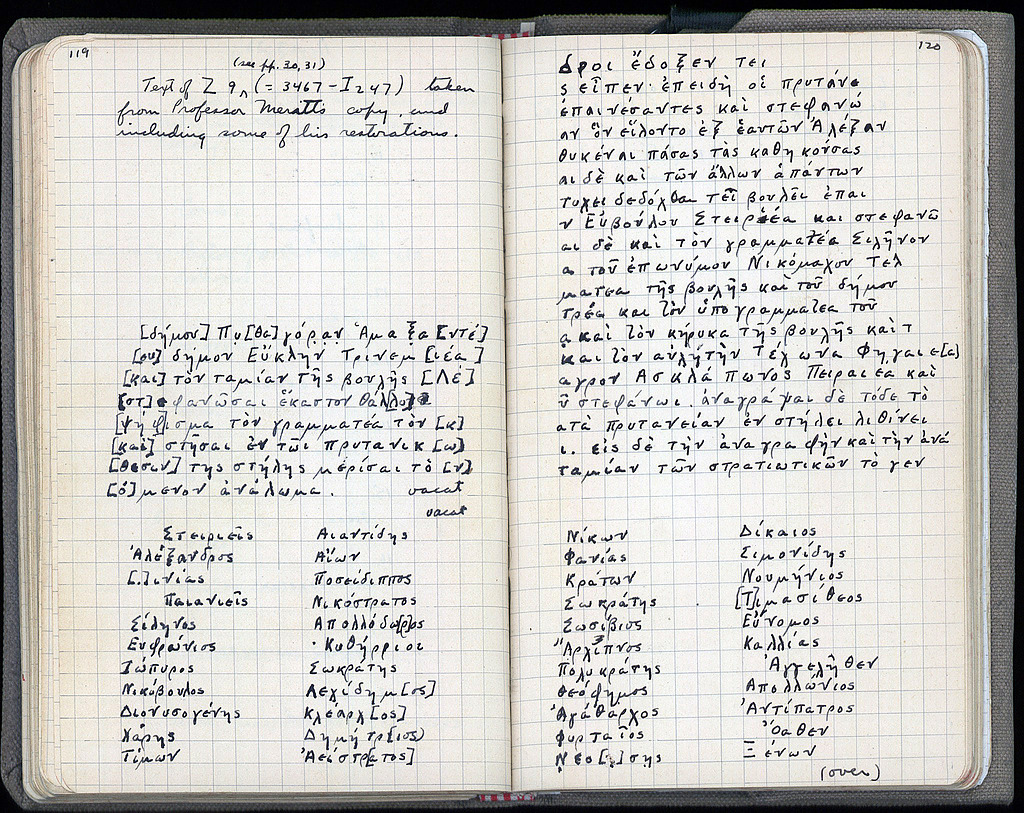 119
(see pp. 30, 31)
Text of Σ 9 (= 3467 - I 247) taken
from Professor Meritt's copy, and
including some of his restorations.
[δήμου] Πυ[θα]γόραν Ἁμαξα[ντέ]
[ου] δήμον Εὐκλῆν Τρινεμ[ιέα]
[και] τὸν ταμίαν τῆς βουλῆς [Λέ]
[στ]εφανῶσαι ἕκαστον θάλλο
[ψή φ]ισμα τὸν γραμματέα τὸν [κ]
[καὶ] στῆσαι ἐν τῶι πρυτανικ[ω]
[θεσιν] της στήλης μερίσαι τὸ [ν]
[ό]μενον ἀνάλωμα. vacat
vacat
Στειριεῖς
Ἀλέξανδρος
[..]ινίας
Παιανιεῖς
Σίληνος
Ευφρόνιος
Ζώπυρος
Νικόβουλος
Διονυσογένης
Χάρης
Τίμων
Αιαντίδης
Αἴων
Ποσείδιππος
Νικόστρατος
Απολλόδωρος
Κυθήρριοι
Σωκράτης
Λεχίδημ[ος]
Κλέαρχ[ος]
Δημήτρ[ιος]
Ἀείστρ[ατος]
120
δροι ἔδοξεν τει
ς εἶπεν· ἐπειδὴ οἱ πρυτάνε
ἐπαινέσαντες καὶ στεφανώ
αν ὃν εἵλοντο ἐξ ἑαυτῶν Ἀλέξαν
θυκέναι πάσας τὰς καθηκούσας
αι δὲ καὶ τῶν ἄλλων ἁπάντων
τύχει δεδόχθαι τεῖ βουλεῖ ἐπαι
ν Εὐβούλου Στειριέα και στεφανῶ
αι δὲ καὶ τὸν γραμματέα Σιλῆνον
α τοῦ ἐπωνύμου Νικόμαχον
ματέα τῆς βουλῆς καὶ τοῦ δήμου
τρέα και τὸν ὑπογραμματέα τοῦ
α καὶ τὸν κήρυκα τῆς βουλῆς καὶ τ
και τὸν αὐλητὴν Φηγαιε[α]
αγρον Ασκλάπωνος Πειραιέα καὶ
ῦ στεφάνωι. ἀναγράψαι δὲ τόδε τὸ
ατὰ πρυτανείαν ἐν στήλει λιθίνει
ι. εἰς δὲ τὴν ἀναγραφὴν καὶ τὴν ἀνά
ταμίαν τῶν στρατιωτικῶν τὸ γεν
Νίκων
Φανίας
Κράτων
Σωκράτης
Σωσίβιος
Ἄρχιπνος
Πολυκράτης
Θεόφημος
Ἀγάθαρχος
Φυρταῖος
Νεο[.]σης
Δίκαιος
Σιμονίδης
Νουμήνιος
[Τ]ιμασίθεος
Εὔνομος
Καλλίας
Ἀγγελῆθεν
Απολλώνιος
Ἀντίπατρος
Ὄαθεν
Ξένων
(over)